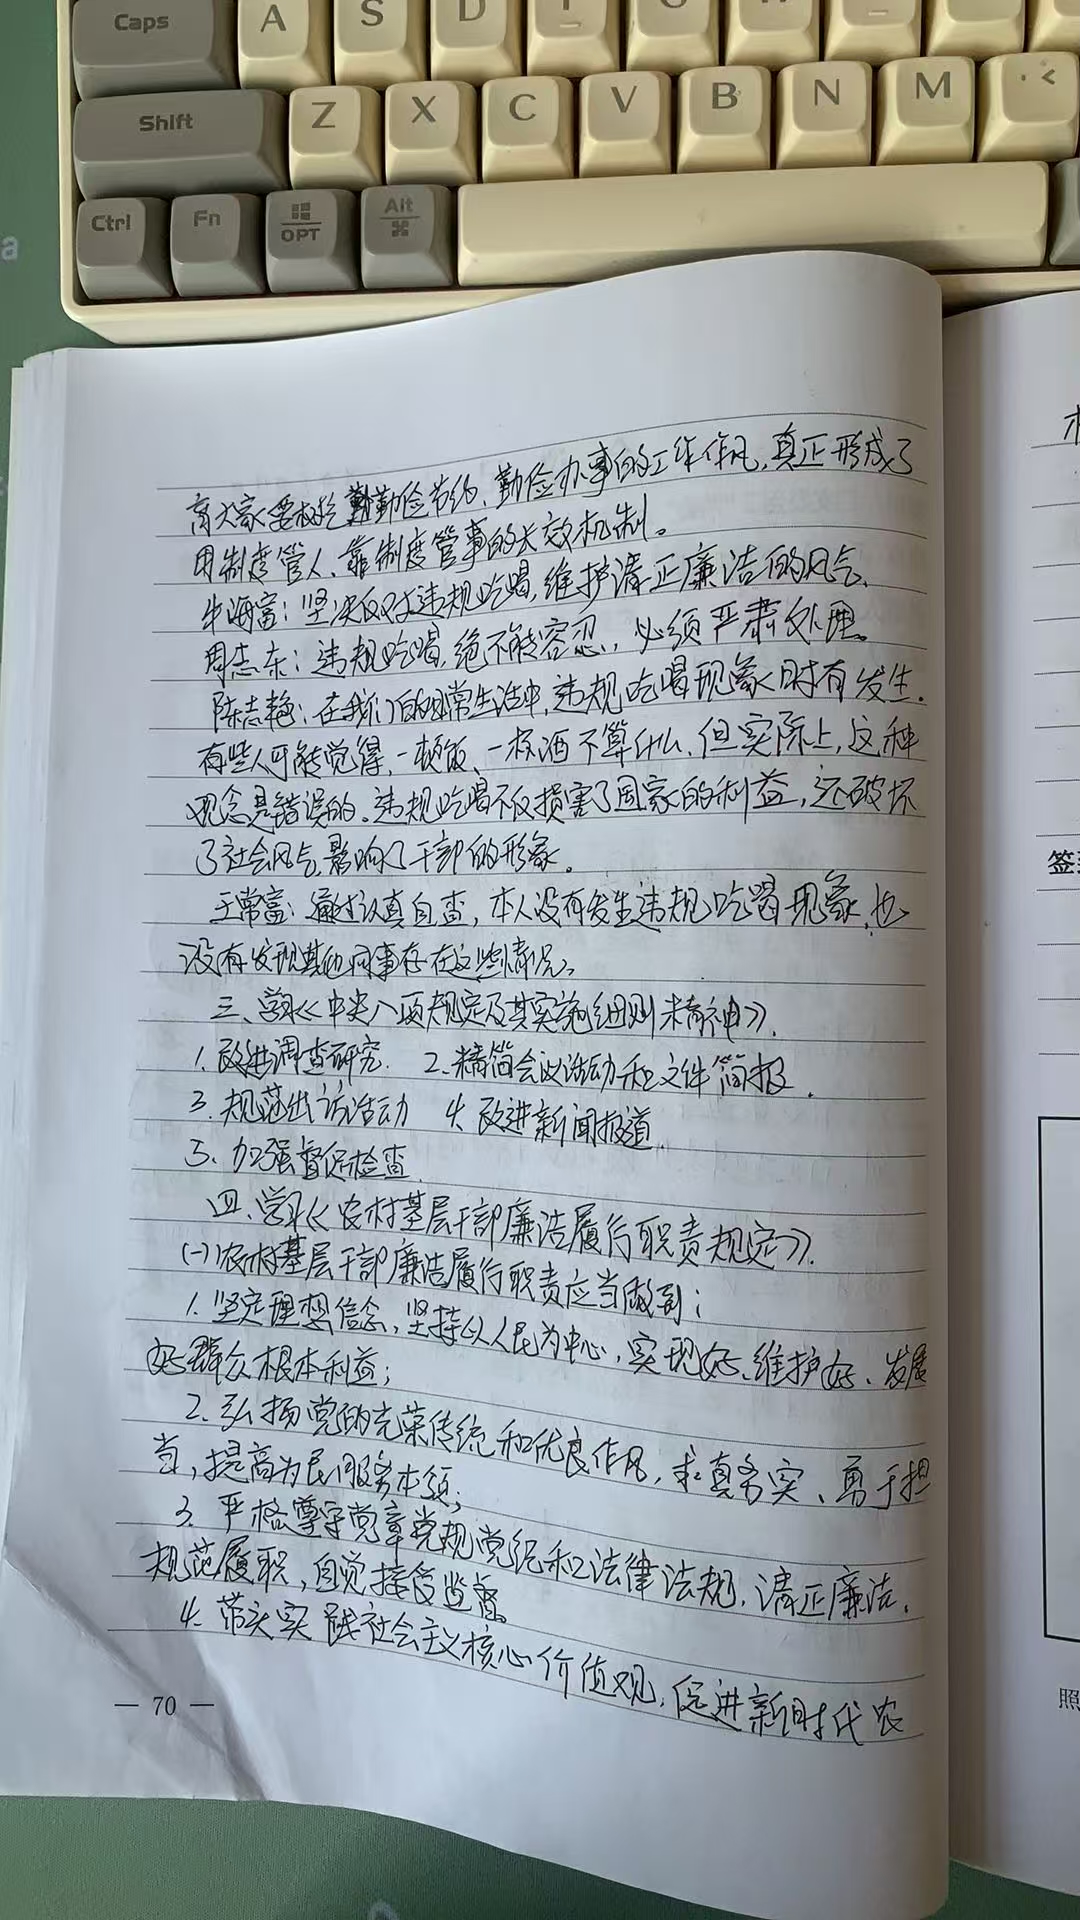 Caps A S D F G H
Shift Z X C V B N M <
Ctrl Fn OPT Alt
育大家要树立勤俭节约、勤俭办事的工作作风,真正形成了
用制度管人、靠制度管事的长效机制。
牛海富:坚决反对违规吃喝,维护清正廉洁的风气、
周志东:违规吃喝,绝不能容忍,必须严肃处理。
陈志艳:在我们的日常生活中,违规吃喝现象时有发生.
有些人可能觉得,一顿饭、一杯酒不算什么,但实际上,这种
观念是错误的。违规吃喝不仅损害了国家的利益,还破坏
了社会风气,影响了干部的形象。
王常富:通过认真自查,本人没有发生违规吃喝现象,也
没有发现其他同事存在这些情况。
三、学习《中央八项规定及其实施细则精神》.
1.改进调查研究. 2.精简会议活动和文件简报.
3.规范出访活动 4.改进新闻报道
5.加强督促检查.
四、学习《农村基层干部廉洁履行职责规定》.
(一)农村基层干部廉洁履行职责应当做到:
1.坚定理想信念,坚持以人民为中心,实现好、维护好、发展
好群众根本利益;
2.弘扬党的光荣传统和优良作风,求真务实、勇于担
当,提高为民服务本领;
3.严格遵守党章党规党纪和法律法规,清正廉洁.
规范履职,自觉接受监督。
4.带头实践社会主义核心价值观,促进新时代农
— 70 —
签
照